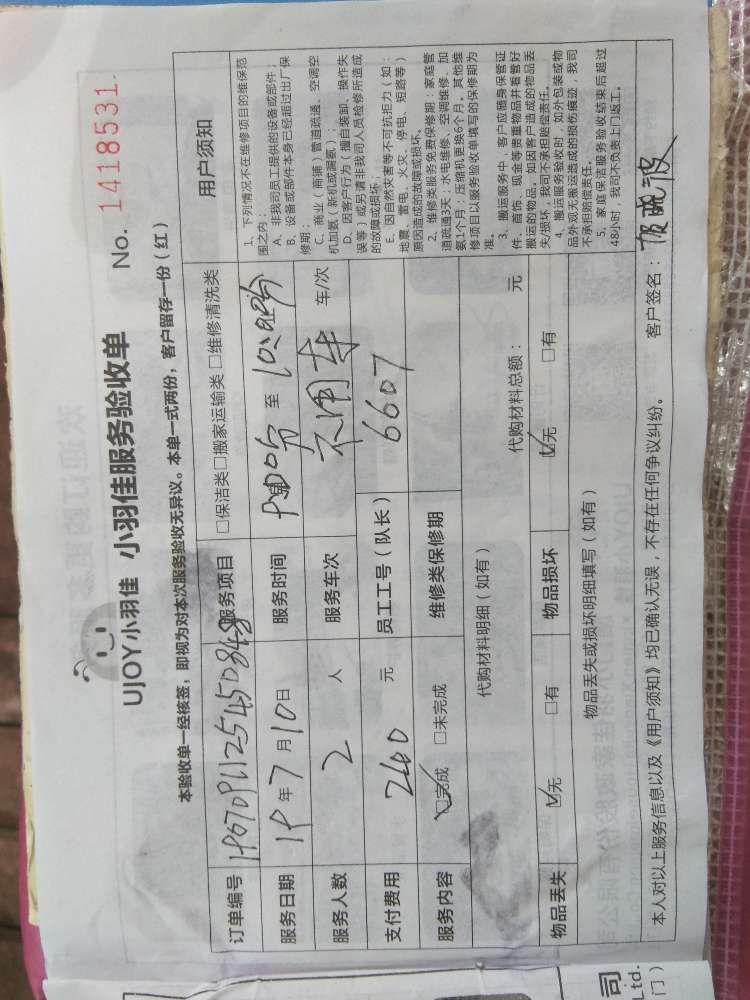 UJOY小羽佳 小羽佳服务验收单 No. 1418531
本验收单一经核签，即视为对本次服务验收无异议。本单一式两份，客户留存一份（红）
订单编号 服务项目 □保洁类□搬家运输类 □维修清洗类
服务日期 19年7月10日 服务时间 至
服务人数 2 人 服务车次 不用车 车/次
支付费用 240 元 员工工号（队长） 6607
服务内容 ☑完成 □未完成 维修类保修期
代购材料明细（如有） 代购材料总额： 元
物品丢失 ☑无 □有 物品损坏 ☑无 □有
物品丢失或损坏明细填写（如有）
用户须知
1、下列情况不在维修项目的维保范
围之内：
A、非我司员工提供的设备或部件；
B、设备或部件本身已经超过出厂保
修期；
C、商业（商铺）管道疏通、空调空
机加氨（新机或漏氨）；
D、因客户行为（擅自装卸、操作失
误等）或另请非我司人员检修所造成
的故障或损坏；
E、因自然灾害等不可抗拒力（如：
地震、雷电、火灾、停电、短路等）
原因造成的故障或损坏。
2、维修类服务免费保修期：家庭管
道疏通3天；水电维修、空调维修、加
氨1个月；压缩机更换6个月，其他维
修项目以服务验收单填写的保修期为
准。
3、搬运服务中，客户应随身保管证
件、首饰、现金等贵重物品并看管好
搬运的物品，如因客户造成的物品丢
失/损坏，我司不承担赔偿责任。
4、搬运服务验收时，如外包装或物
品外观无搬运造成的损伤痕迹，我司
不承担赔偿责任。
5、家庭保洁服务验收结束后超过
48小时，我司不负责上门返工。
本人对以上服务信息以及《用户须知》均已确认无误，不存在任何争议纠纷。 客户签名：
司
Ltd.
门）